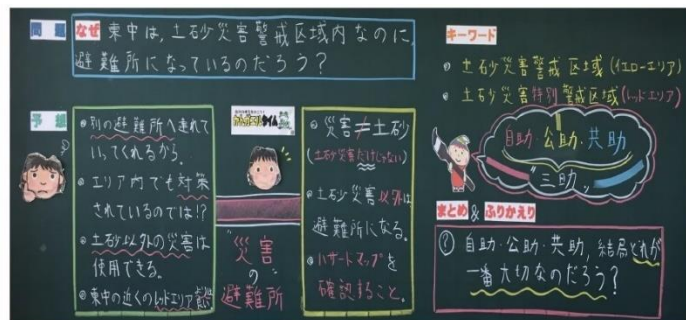 問題
なぜ東中は、土砂災害警戒区域内なのに、
避難所になっているのだろう？
予想
◎別の避難所へ連れて
いってくれるから。
◎エリア内でも対策
されているのでは!?
◎土砂以外の災害は
使用できる。
◎東中の近くのレッドエリア
かんがえるタイム
"災害
の
避難所
◎災害≠土砂
(土砂災害だけじゃない)
◎土砂災害以外は
避難所になる。
◎ハザードマップを
確認すること。
キーワード
◎土砂災害警戒区域(イエローエリア)
◎土砂災害特別警戒区域(レッドエリア)
自助・公助・共助
"三助"
まとめ&ふりかえり
? 自助・公助・共助、結局どれが
一番大切なのだろう？